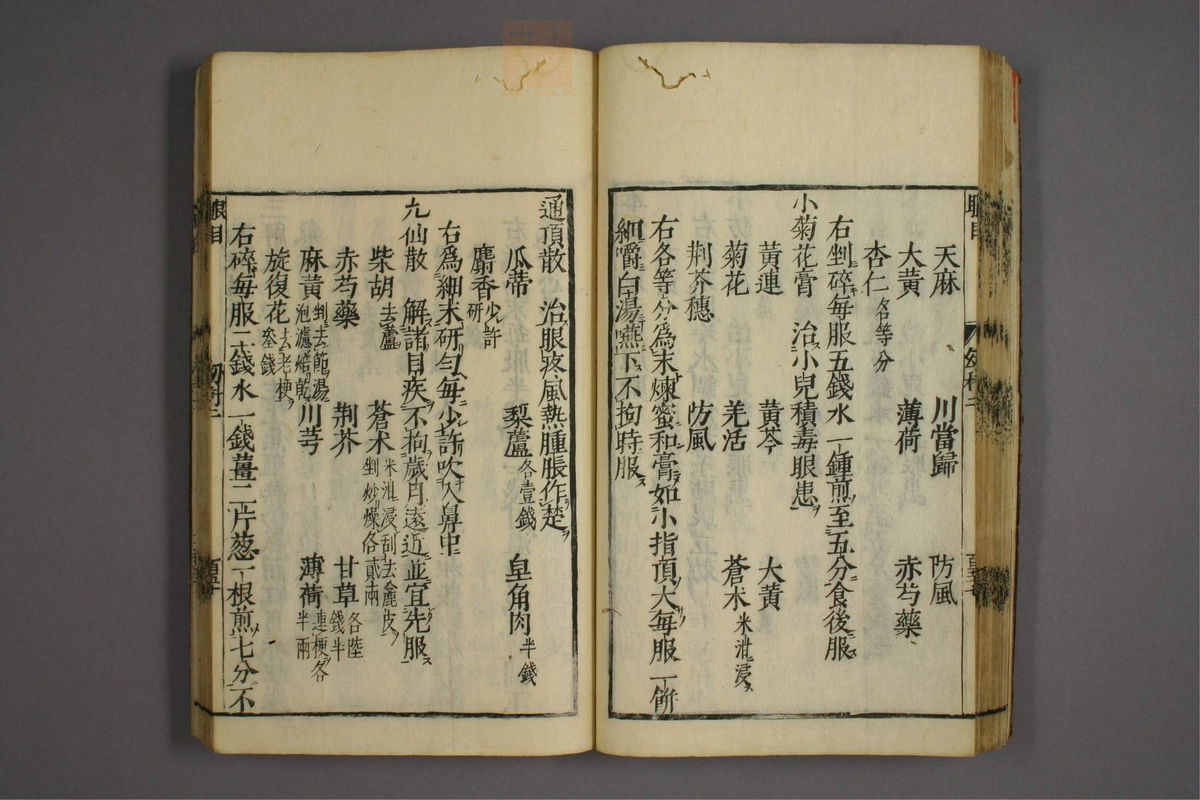 天麻 川當歸 防風
大黃 薄荷 赤芍藥
杏仁各等分
右剉碎每服五錢水一鍾煎至五分食後服
小菊花膏 治小兒積毒眼患
黃連 黃芩 大黃
菊花 羌活 蒼朮米泔浸
荆芥穗 防風
右各等分爲末煉蜜和膏如小指頂大每服一餅
細嚼白湯嚥下不拘時服
通頂散 治眼疼風熱腫脹作楚
瓜蒂 藜蘆各壹錢 皁角肉半錢
麝香少許研
右爲細末研勻每少許吹入鼻中
九仙散 解諸目疾不拘歲月遠近並宜先服
柴胡去蘆 蒼朮米泔浸刮去麄皮剉炒燥各貳兩
赤芍藥 荆芥 甘草各陸錢半
麻黃剉去節湯泡濾焙乾 川芎 薄荷連梗各半兩
旋復花去老梗叄錢
右碎每服二錢水一錢薑二片葱一根煎七分不
眼目